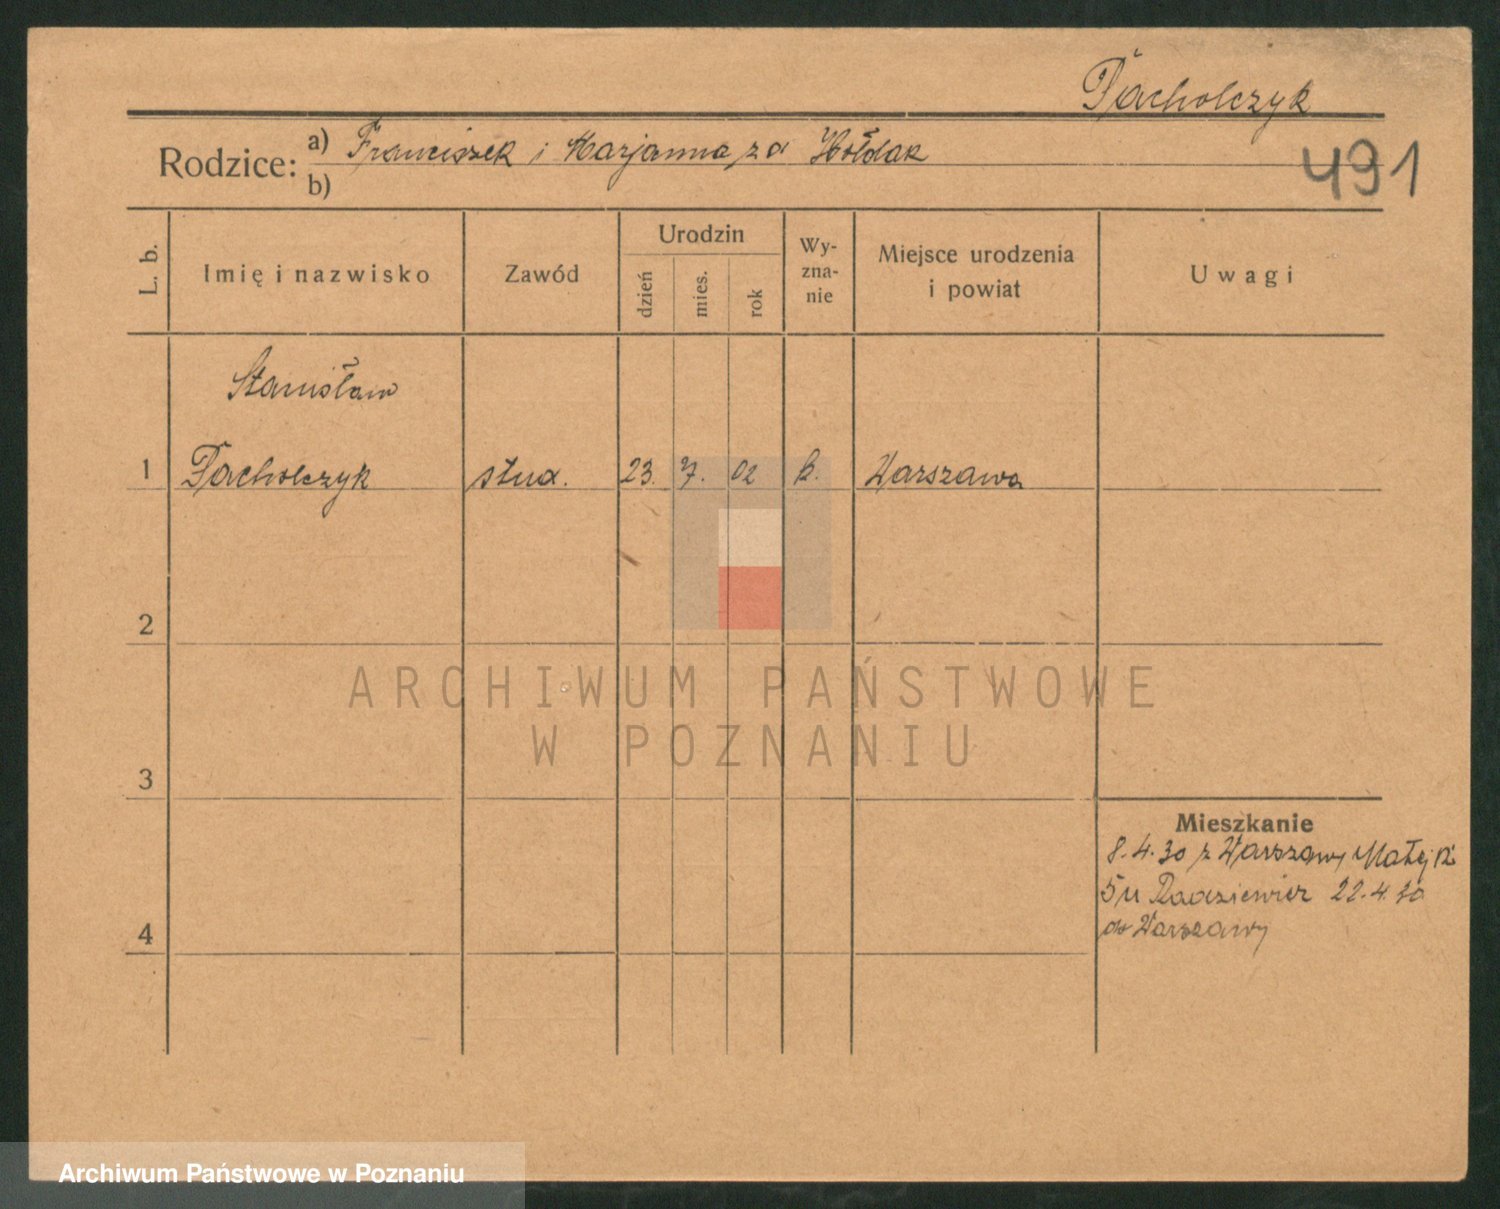 Pacholczyk
Rodzice: a) Franciszek i Marjanna za Hołdak
b)
491
L. b.
Imię i nazwisko
Zawód
Urodzin
dzień
mies.
rok
Wy-
zna-
nie
Miejsce urodzenia
i powiat
Uwagi
Stanisław
1 Pacholczyk stud. 23. 7. 02 k. Warszawa
2
ARCHIWUM PAŃSTWOWE
W POZNANIU
3
4
Mieszkanie
8.4.30 z Warszawy
5 u Radziewicz 22.4.30
do Warszawy
Archiwum Państwowe w Poznaniu